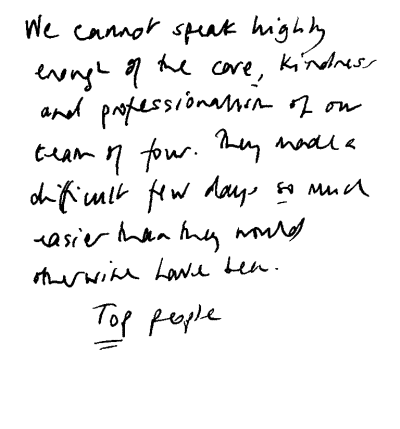 We cannot speak highly
enough of the care, kindness
and professionalism of our
team of four. They made a
difficult few days so much
easier than they would
otherwise have been.
Top people